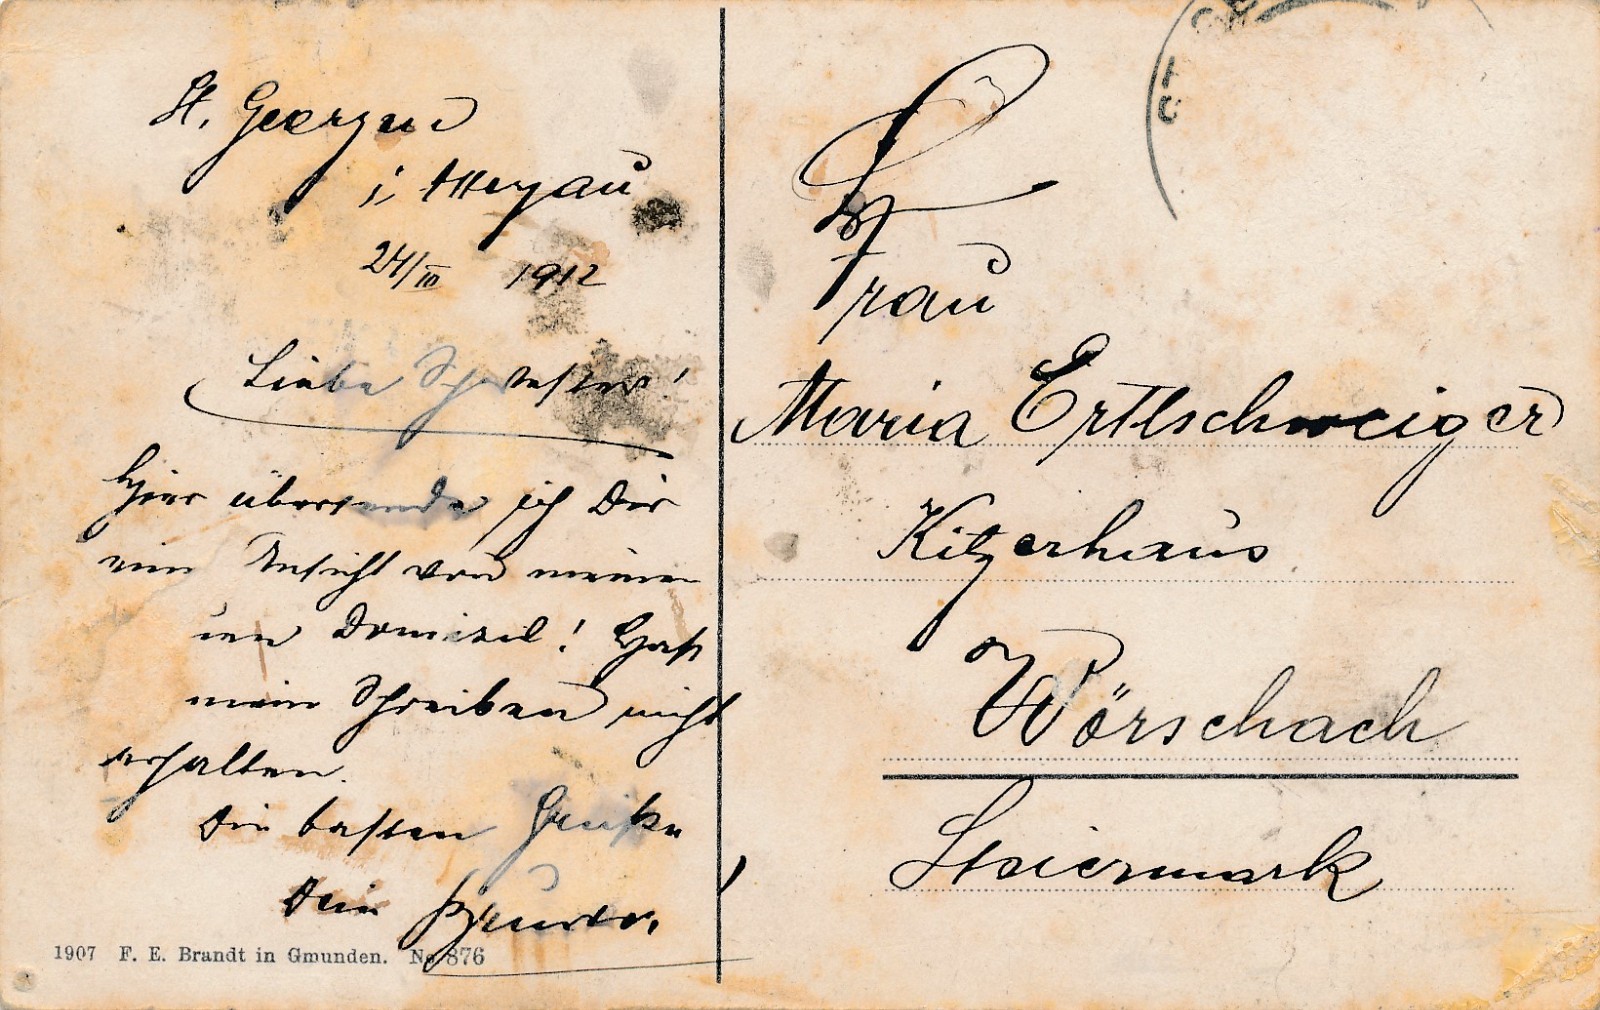 St. Georgen
i. Attergau
24/III 1912
Liebe Schwester!
Hier übersende ich Dir
eine Ansicht von meinem
neuen Domizil! Hast
mein Schreiben nicht
erhalten.
Die besten Grüße
Dein
1907 F. E. Brandt in Gmunden. No 876
Frau
Maria Ertlschweiger
Kitzerhaus
Wörschach
Steiermark